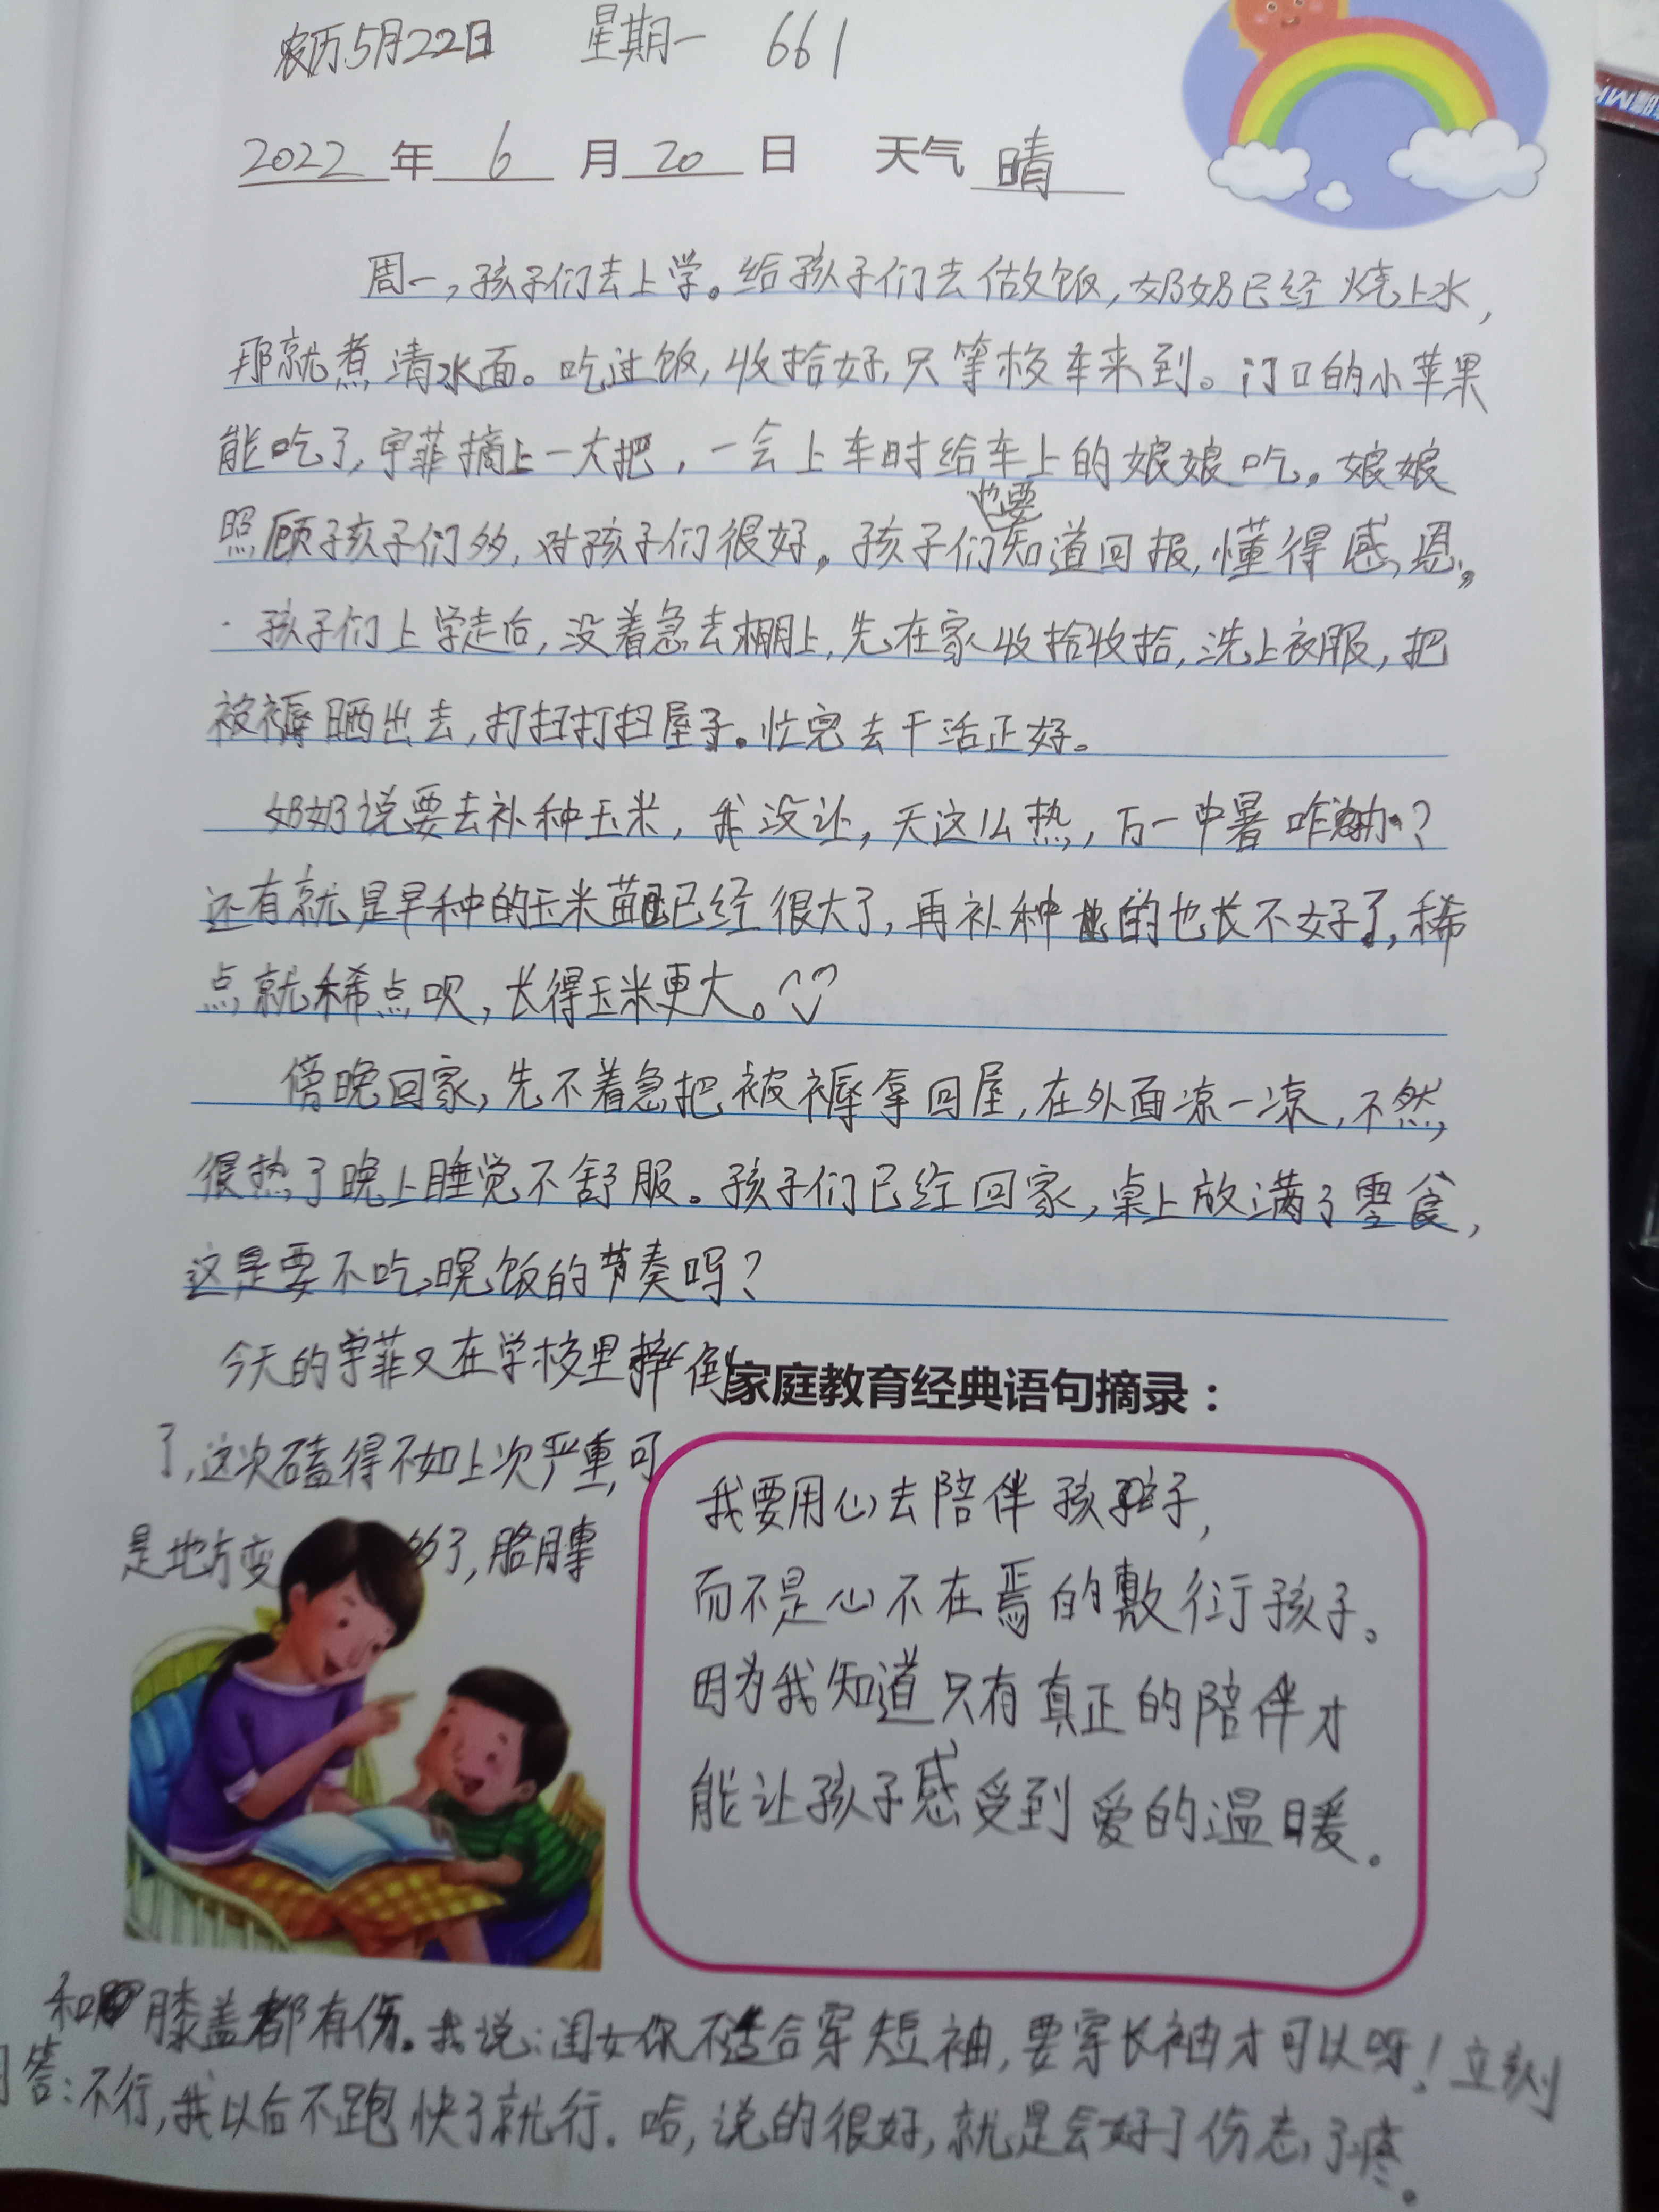 农历5月22日 星期一 661
2022年 6 月 20 日 天气 晴
周一,孩子们去上学。给孩子们去做饭,奶奶已经烧上水,
那就煮清水面。吃过饭,收拾好,只等校车来到。门口的小苹果
能吃了,宇菲摘上一大把,一会上车时给车上的娘娘吃。娘娘
照顾孩子们多,对孩子们很好。孩子们也要知道回报,懂得感恩。
孩子们上学走后,没着急去棚上,先在家收拾收拾,洗上衣服,把
被褥晒出去,打扫打扫屋子。忙完去干活正好。
奶奶说要去补种玉米,我没让,天这么热,万一中暑咋?
还有就是早种的玉米苗已经很大了,再补种的也长不好了,稀
点就稀点呗,长得玉米更大。
傍晚回家,先不着急把被褥拿回屋,在外面凉一凉,不然,
很热了晚上睡觉不舒服。孩子们已经回家,桌上放满了零食,
这是要不吃晚饭的节奏吗?
今天的宇菲又在学校里摔倒
了,这次磕得不如上次严重,可
是地方变多了,胳膊
家庭教育经典语句摘录:
我要用心去陪伴孩子,
而不是心不在焉的敷衍孩子。
因为我知道只有真正的陪伴才
能让孩子感受到爱的温暖。
和膝盖都有伤。我说:闺女你不适合穿短袖,要穿长袖才可以呀!立刻
答:不行,我以后不跑快了就行.哈,说的很好,就是会好了伤忘了疼。